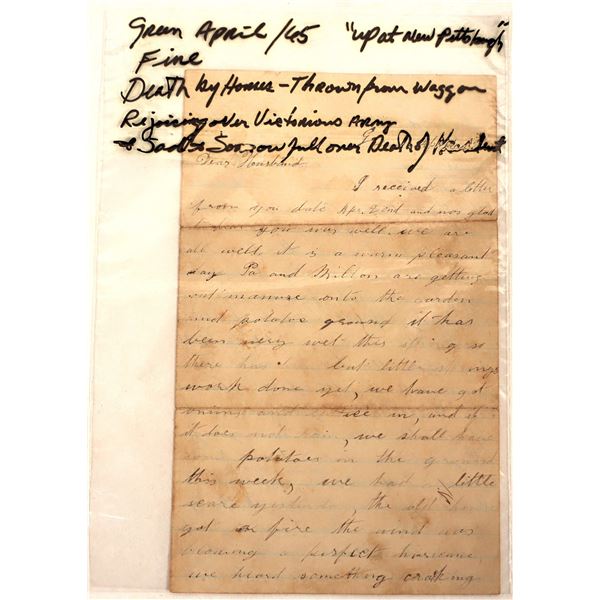 Green April /65 "up at New Pittsburgh"
Fine
Death by Horses - Thrown from Waggon
Rejoicing over Victorious Army
& Sad & Sorrowfull over Death of
Dear Housband
I received a letter
from you date Apr. 2nd and was glad
to hear you was well. we are
all well, it is a warm pleasant
day Pa and Milton are getting
out manure onto the garden
and potatoe ground it has
been very wet this spring so
there has but little
work done yet, we have got
onions and in, and if
it does not rain, we shall have
some potatoes in the ground
this week, we had a little
scare yesterday, the old
got on fire the wind was
blowing a perfect hurricane
we heard something craking